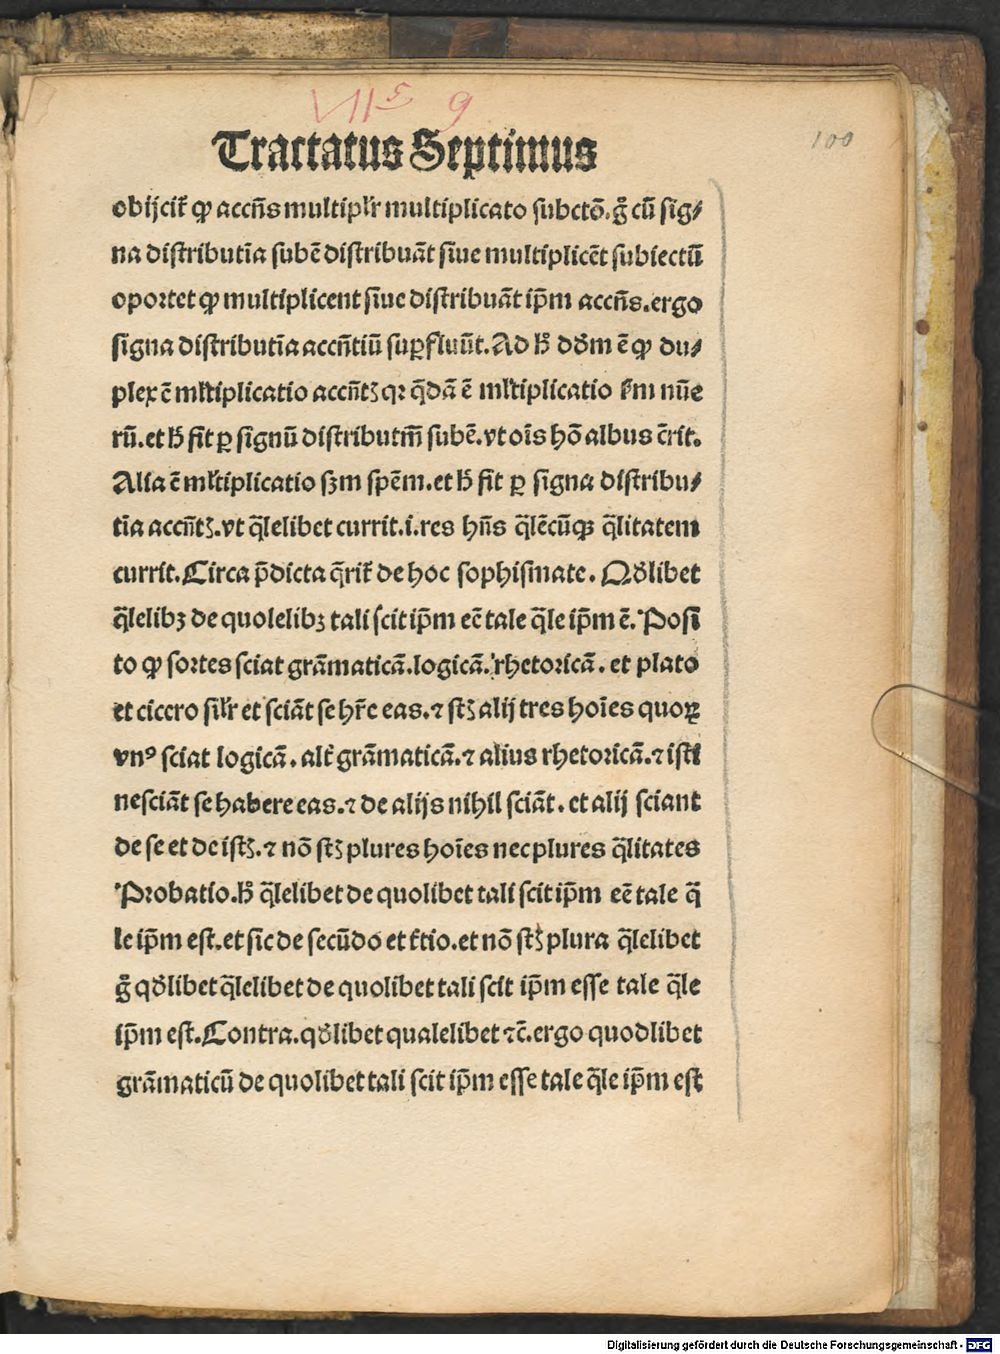 VII 5 9
100
Tractatus Septimus
obijcit̃ ꝙ accñs multiplr̃ multiplicato subctõ. g̃ cũ sig⸗
na distributĩa subẽ distribuãt siue multiplicẽt subiectũ
oportet ꝙ multiplicent siue distribuãt ip̃m accñs. ergo
signa distributĩa accñtiũ suꝑfluũt. Ad h̃ dd̃m ẽ ꝙ du⸗
plex ẽ mĺtiplicatio accñtꝫ qꝛ q̃dã ẽ mĺtiplicatio s̃m nũe
rũ. et h̃ fit ꝑ signũ distributiũ subẽ. vt oĩs hõ albus c̃rit.
Alia ẽ mĺtiplicatio sꝫm spẽm. et h̃ fit ꝑ signa distribu⸗
tĩa accñtꝫ. vt q̃lelibet currit. i. res hñs q̃lẽcũqꝫ q̃litatem
currit. Circa p̃dicta q̃rit̃ de hoc sophismate. Qd̃libet
q̃lelibꝫ de quolelibꝫ tali scit ip̃m eẽ tale q̃le ip̃m ẽ. Posi
to ꝙ sortes sciat grãmaticã. logicã. rhetoricã. et plato
et cicero silr̃ et sciãt se hr̃e eas. ⁊ st̃ alij tres hoĩes quoꝝ
vnꝰ sciat logicã. alt̃ grãmaticã. ⁊ alius rhetoricã. ⁊ isti
nesciãt se habere eas. ⁊ de alijs nihil sciãt. et alij sciant
de se et de istꝫ. ⁊ nõ st̃ plures hoĩes nec plures q̃litates
Probatio. h̃ q̃lelibet de quolibet tali scit ip̃m eẽ tale q̃
le ip̃m est. et sic de secũdo et t̃tio. et nõ st̃ plura q̃lelibet
g̃ qd̃libet q̃lelibet de quolibet tali scit ip̃m esse tale q̃le
ip̃m est. Contra. qd̃libet qualelibet ⁊c̃. ergo quodlibet
grãmaticũ de quolibet tali scit ip̃m esse tale q̃le ip̃m est
Digitalisierung gefördert durch die Deutsche Forschungsgemeinschaft - DFG